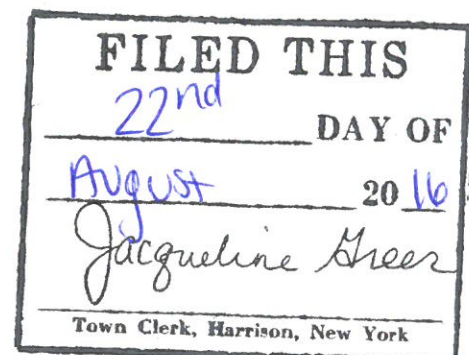 FILED THIS
22nd DAY OF
August 20 16
Jacqueline Greer
Town Clerk, Harrison, New York